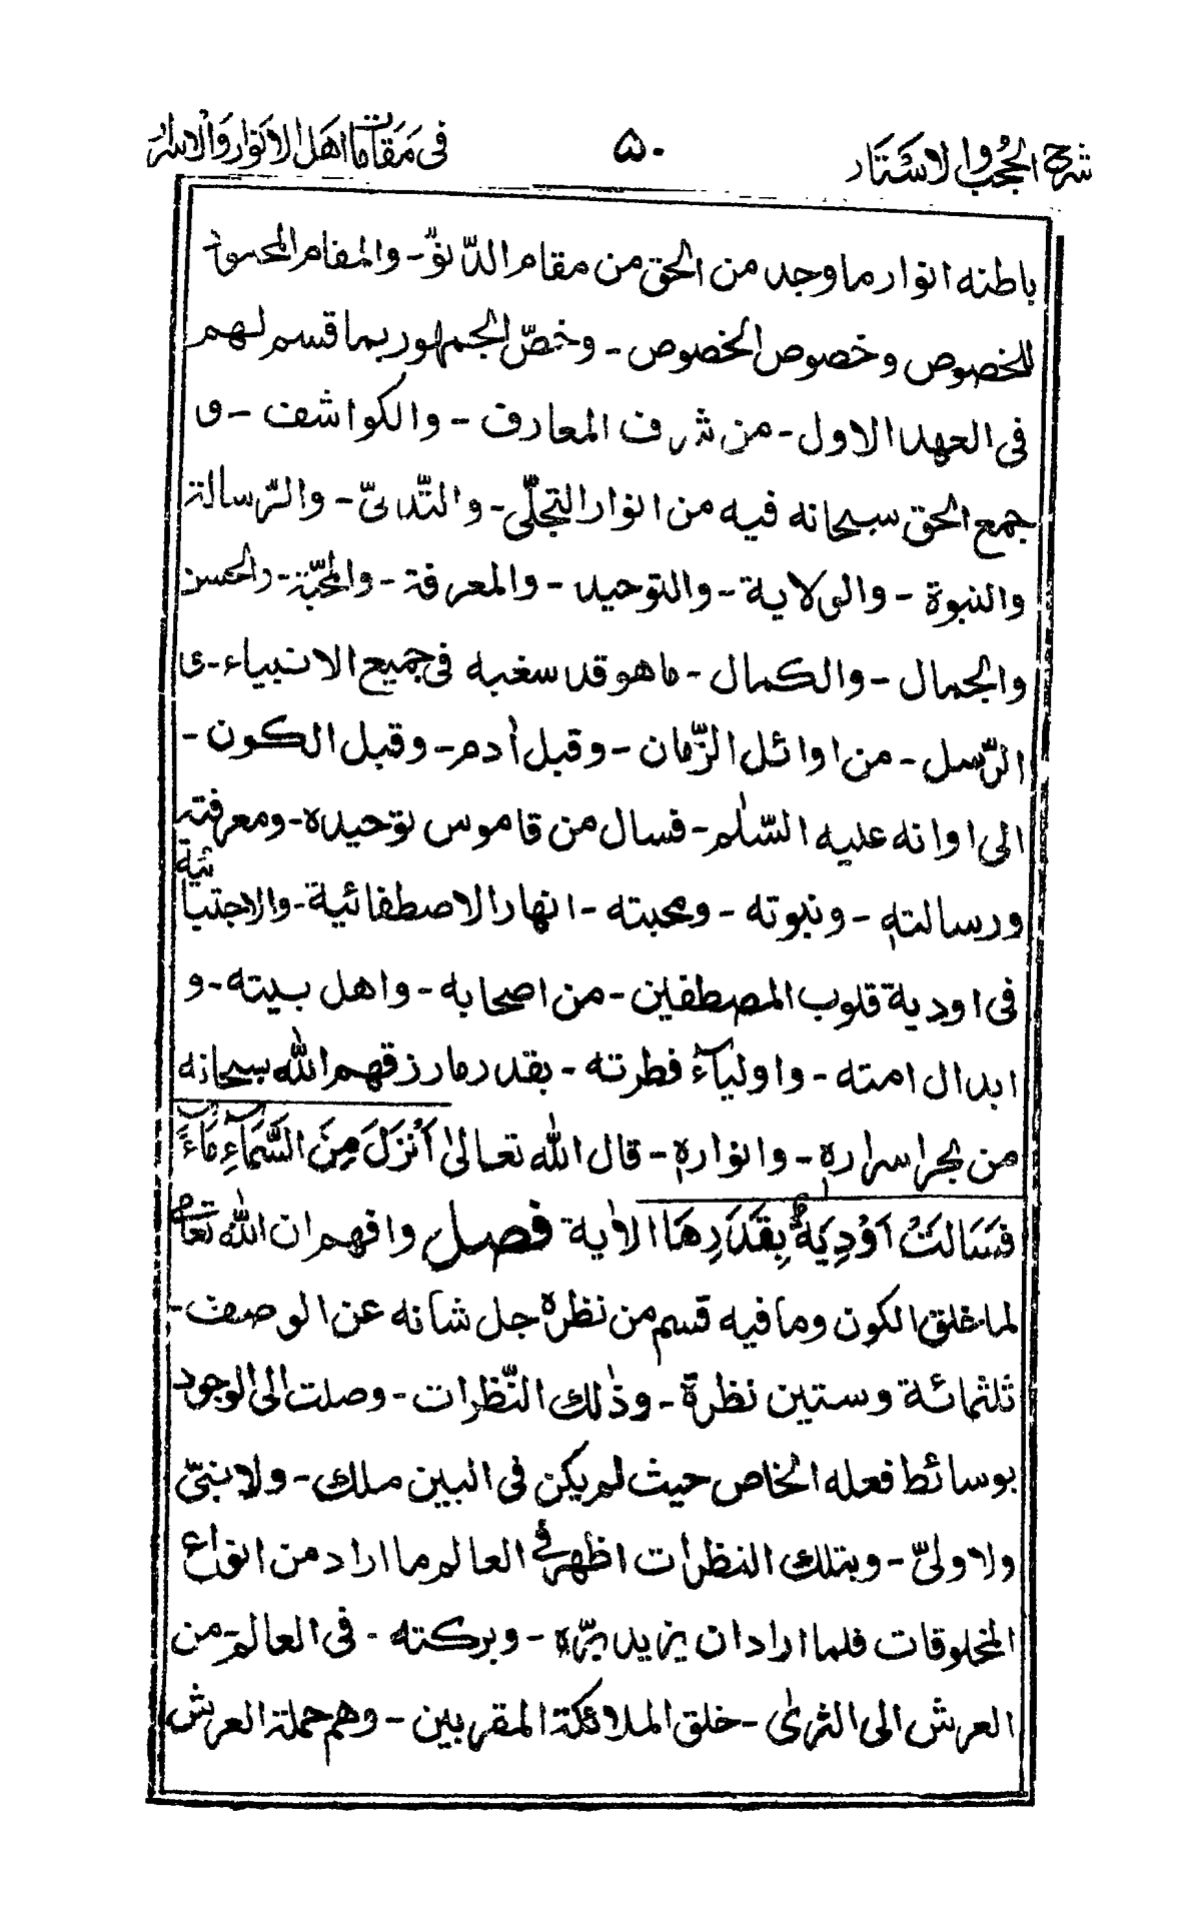 شرح الحُجُب والاسْتَار ۵۰ فی مَقَامَات اهَل الانوَار وَالاسْرَار
باطنه انوار ما وجد من الحق من مقام الدّنوّ- والمقام المحمود
للخصوص وخصوص الخصوص - وخصّ الجمهور بما قسم لهم
فی العهد الاول - من شرف المعارف - والکواشف - و
جمع الحق سبحانه فیه من انوار التجلّی - والتّدلیّ - والرّسالة
والنبوة - والولایة - والتوحید - والمعرفة - والمحبّة - والحسن
والجمال - والکمال - ما هو قد سغبه فی جمیع الانبیاء - و
الرّسل - من اوائل الزّمان - وقبل اٰدم - وقبل الکون -
الی اوانه علیه السّلٰم - فسال من قاموس توحیده - ومعرفته
ورسالته - ونبوته - ومحبته - انهار الاصطفائیة - والاجتبائیة
فی اودیة قلوب المصطفین - من اصحابه - واهل بیته - و
ابدال امته - واولیآء فطرته - بقدر ما رزقهم الله سبحانه
من بحر اسراره - وانواره - قال الله تعالیٰ اَنْزَلَ مِنَ السَّمَآءِ مَآءً
فَسَالَتْ اَوْدِیَةٌ بِقَدَرِهَا الاٰیة فصل وافهم ان الله تعالیٰ
لما خلق الکون وما فیه قسم من نظره جل شانه عن الوصف -
ثلثمائة وستین نظرة - وذٰلك النّظرات - وصلت الی الوجود
بوسائط فعله الخاص حیث لم یکن فی البین ملك - ولا نبیّ
ولا ولیّ - وبتلك النظرات اظهر فی العالم ما اراد من انواع
المخلوقات فلما اراد ان یزید برّه - وبرکته - فی العالم من
العرش الی الثریٰ - خلق الملائکة المقربین - وهم حملة العرش